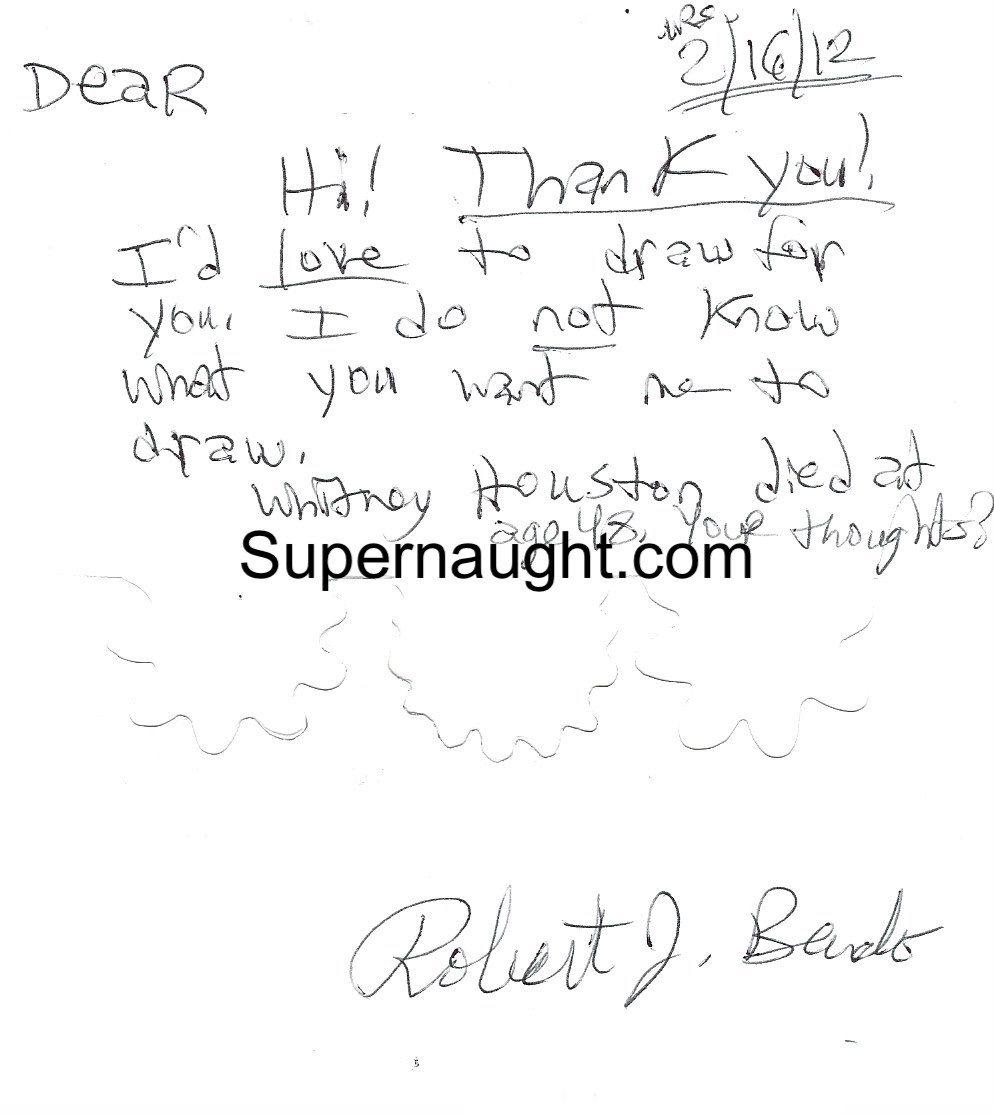 URS
2/16/12
Dear
Hi! Thank you!
I'd love to draw for
you. I do not know
what you want me to
draw.
Whitney Houston died at
age 48. Your thoughts?
Supernaught.com
Robert J. Bardo
5